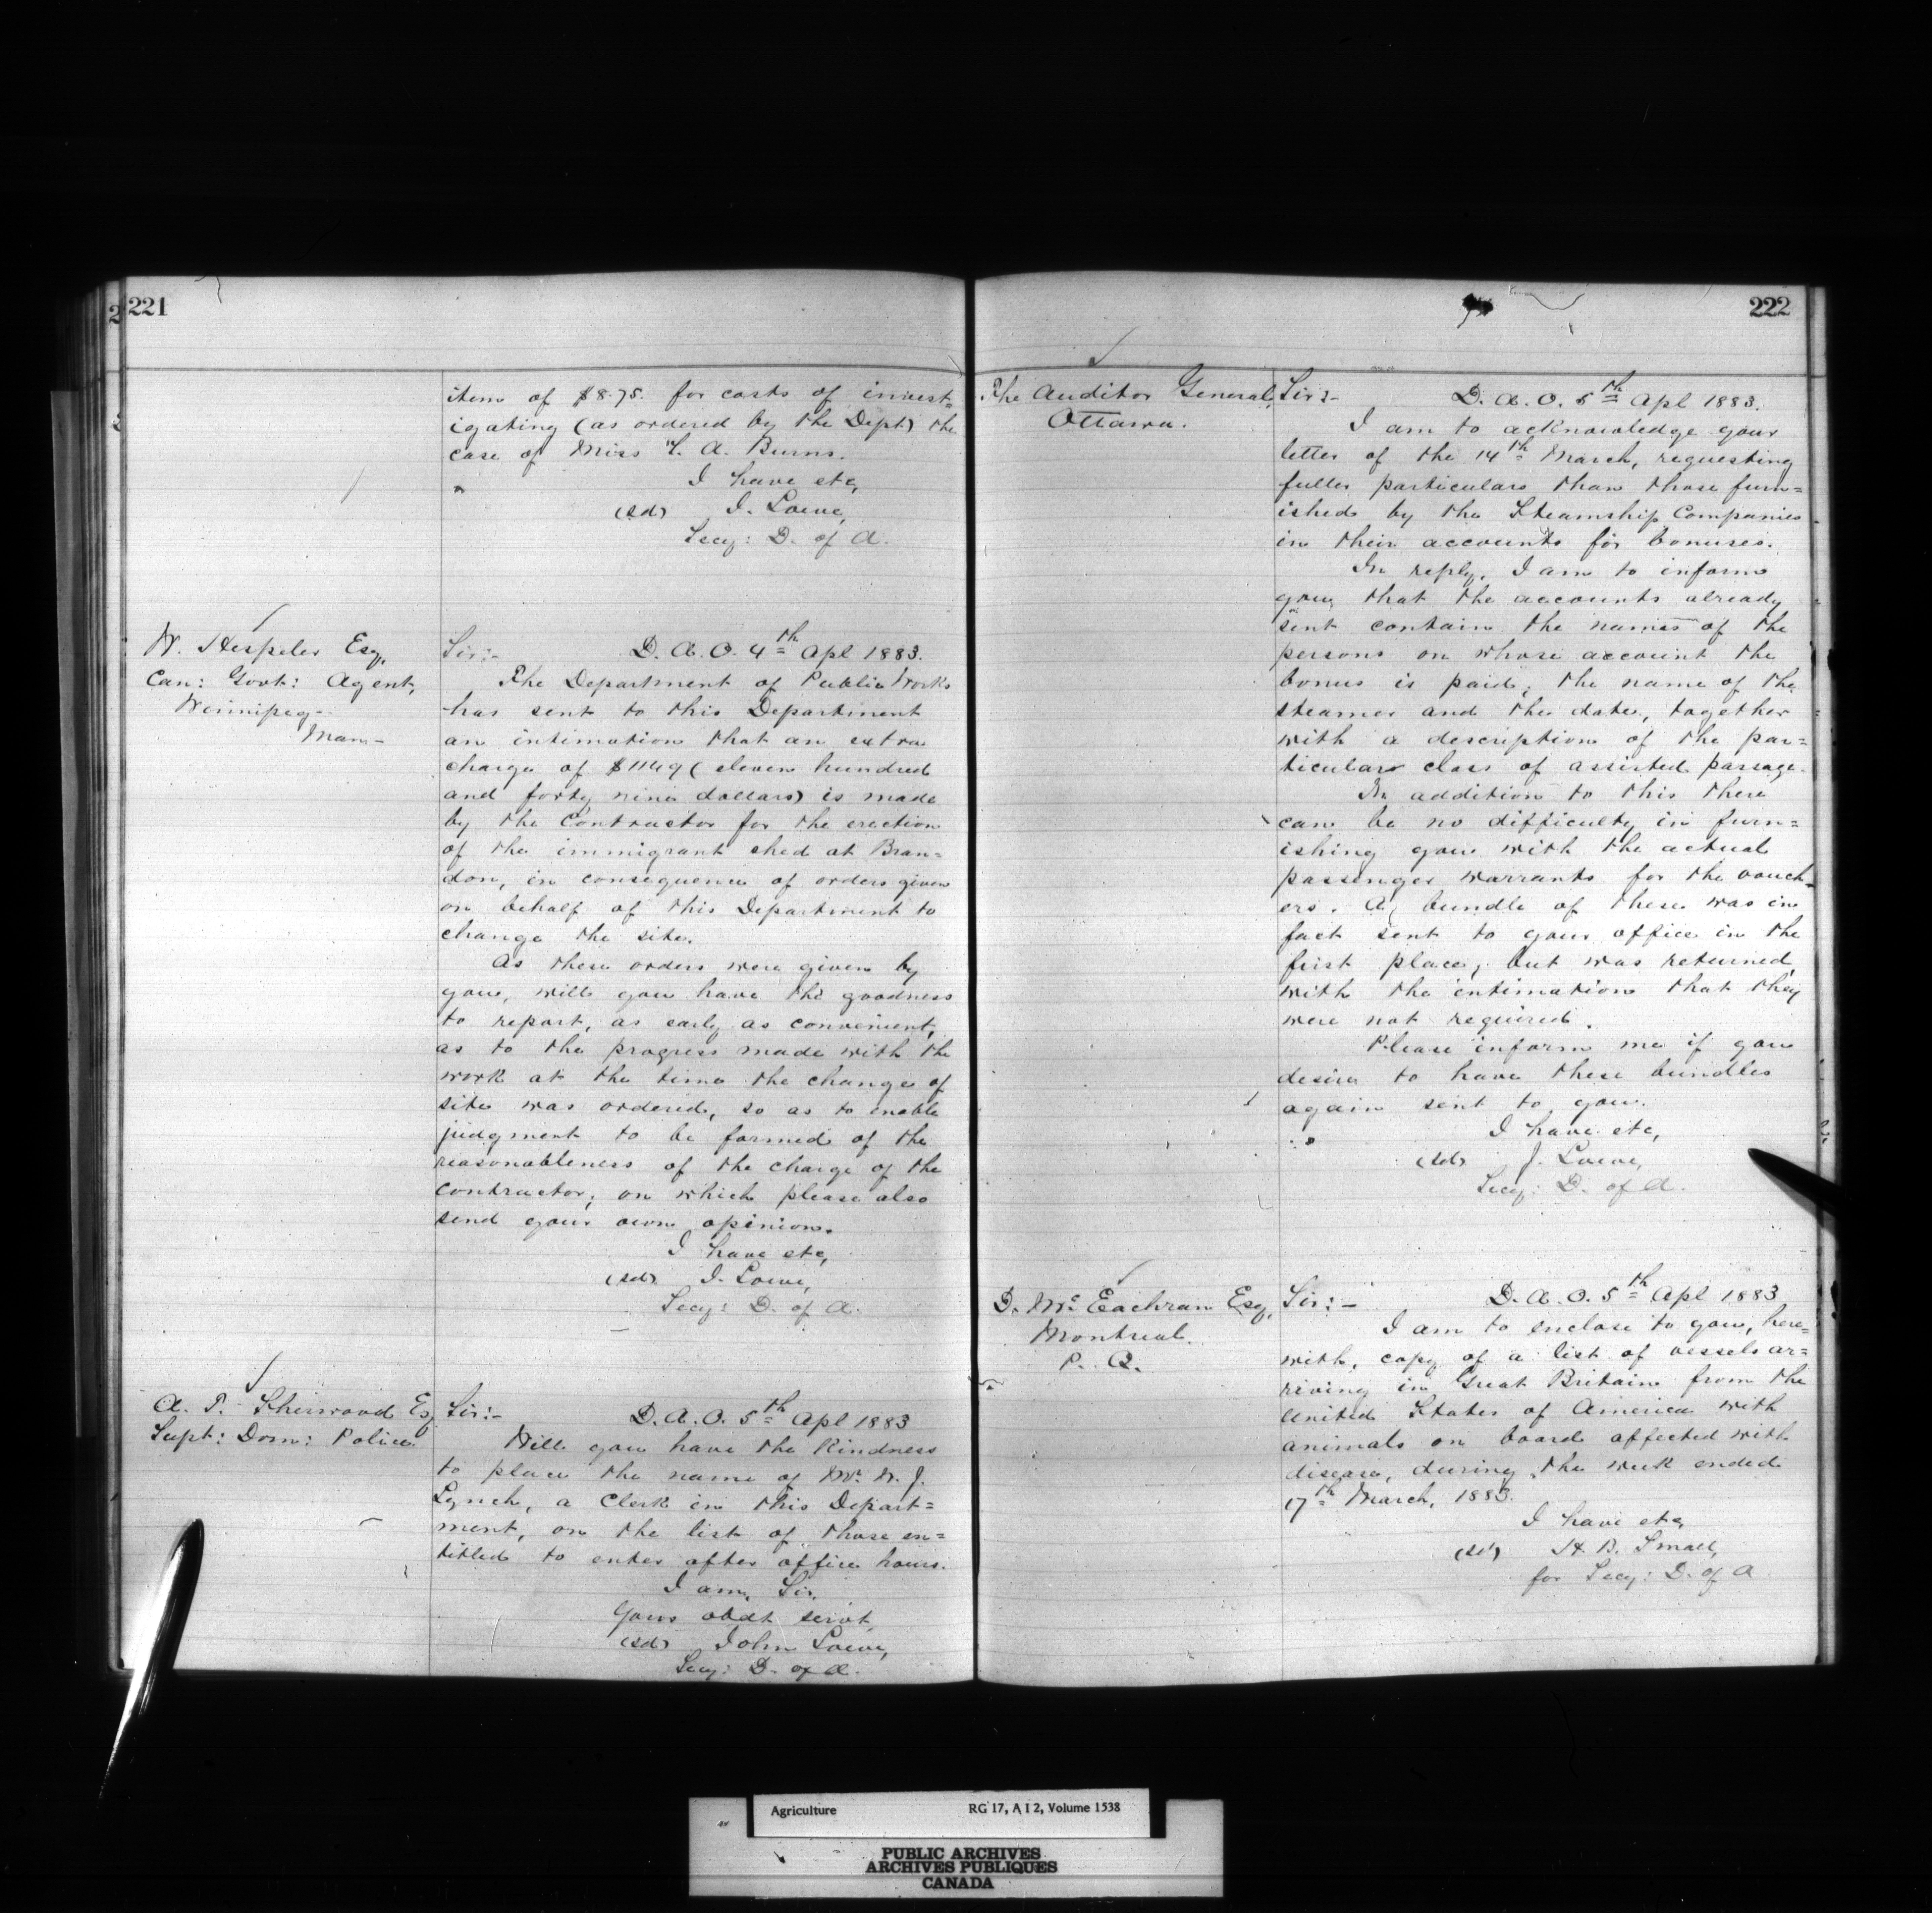 221
item of $8.75. for costs of invest=
igating (as ordered by the Dept) the
case of Miss L. A. Burns.
I have etc,
(sd) J. Lowe,
Secy: D. of A.
W. Hespeler Esq,
Can: Govt: Agent,
Winnipeg-
Man-
Sir:- D. A. O. 4th Apl 1883.
The Department of Public Works
has sent to this Department
an intimation that an extra
charge of $1149 (eleven hundred
and forty nine dollars) is made
by the Contractor for the erection
of the immigrant shed at Bran=
don, in consequence of orders given
on behalf of this Department to
change the site.
As these orders were given by
you, will you have the goodness
to report, as early as convenient,
as to the progress made with the
work at the time the change of
site was ordered, so as to enable
judgment to be formed of the
reasonableness of the charge of the
contractor; on which please also
send your own opinion.
I have etc,
(sd) J. Lowe,
Secy: D. of A.
A. P. Sherwood Esq
Supt: Dom: Police
Sir:- D. A. O. 5th Apl 1883
Will you have the kindness
to place the name of Mr. W. J.
Lynch, a Clerk in this Depart=
ment, on the list of those en=
titled to enter after office hours.
I am, Sir,
Your obdt servt,
(sd) John Lowe,
Secy: D. of A.
222
The Auditor General,
Ottawa.
Sir:- D. A. O. 5th Apl 1883.
I am to acknowledge your
letter of the 14th March, requesting
fuller particulars than those furn=
ished by the Steamship Companies
in their accounts for bonuses.
In reply, I am to inform
you that the accounts already
sent contain the names of the
persons on whose account the
bonus is paid; the name of the
steamer and the date, together
with a description of the par=
ticular class of assisted passage.
In addition to this there
can be no difficulty in furn=
ishing you with the actual
passenger warrants for the vouch-
ers. A bundle of these was in
fact sent to your office in the
first place, but was returned,
with the intimation that they
were not required.
Please inform me if you
desire to have these bundles
again sent to you.
I have etc,
(sd) J. Lowe,
Secy: D. of A.
D. McEachran Esq,
Montreal.
P. Q.
Sir:- D. A. O. 5th Apl 1883
I am to enclose to you, here=
with, copy of a list of vessels ar=
riving in Great Britain from the
United States of America with
animals on board affected with
disease, during the week ended
17th March, 1883.
I have etc,
(sd) H. B. Small,
for Secy: D. of A.
Agriculture RG 17, A I 2, Volume 1538
PUBLIC ARCHIVES
ARCHIVES PUBLIQUES
CANADA